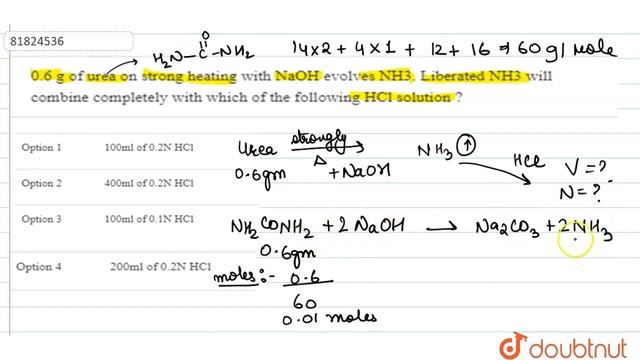 81824536
O
H2N-C-NH2 14x2 + 4x1 + 12 + 16 ⇒ 60 g | mole
0.6 g of urea on strong heating with NaOH evolves NH3. Liberated NH3 will
combine completely with which of the following HCl solution ?
Option 1 100ml of 0.2N HCl
Option 2 400ml of 0.2N HCl
Option 3 100ml of 0.1N HCl
Option 4 200ml of 0.2N HCl
Urea strongly Δ + NaOH NH3 ↑
0.6gm
HCl V = ?
N = ?
NH2CONH2 + 2NaOH → Na2CO3 + 2NH3
0.6gm
moles:- 0.6
60
0.01 moles
doubtnut